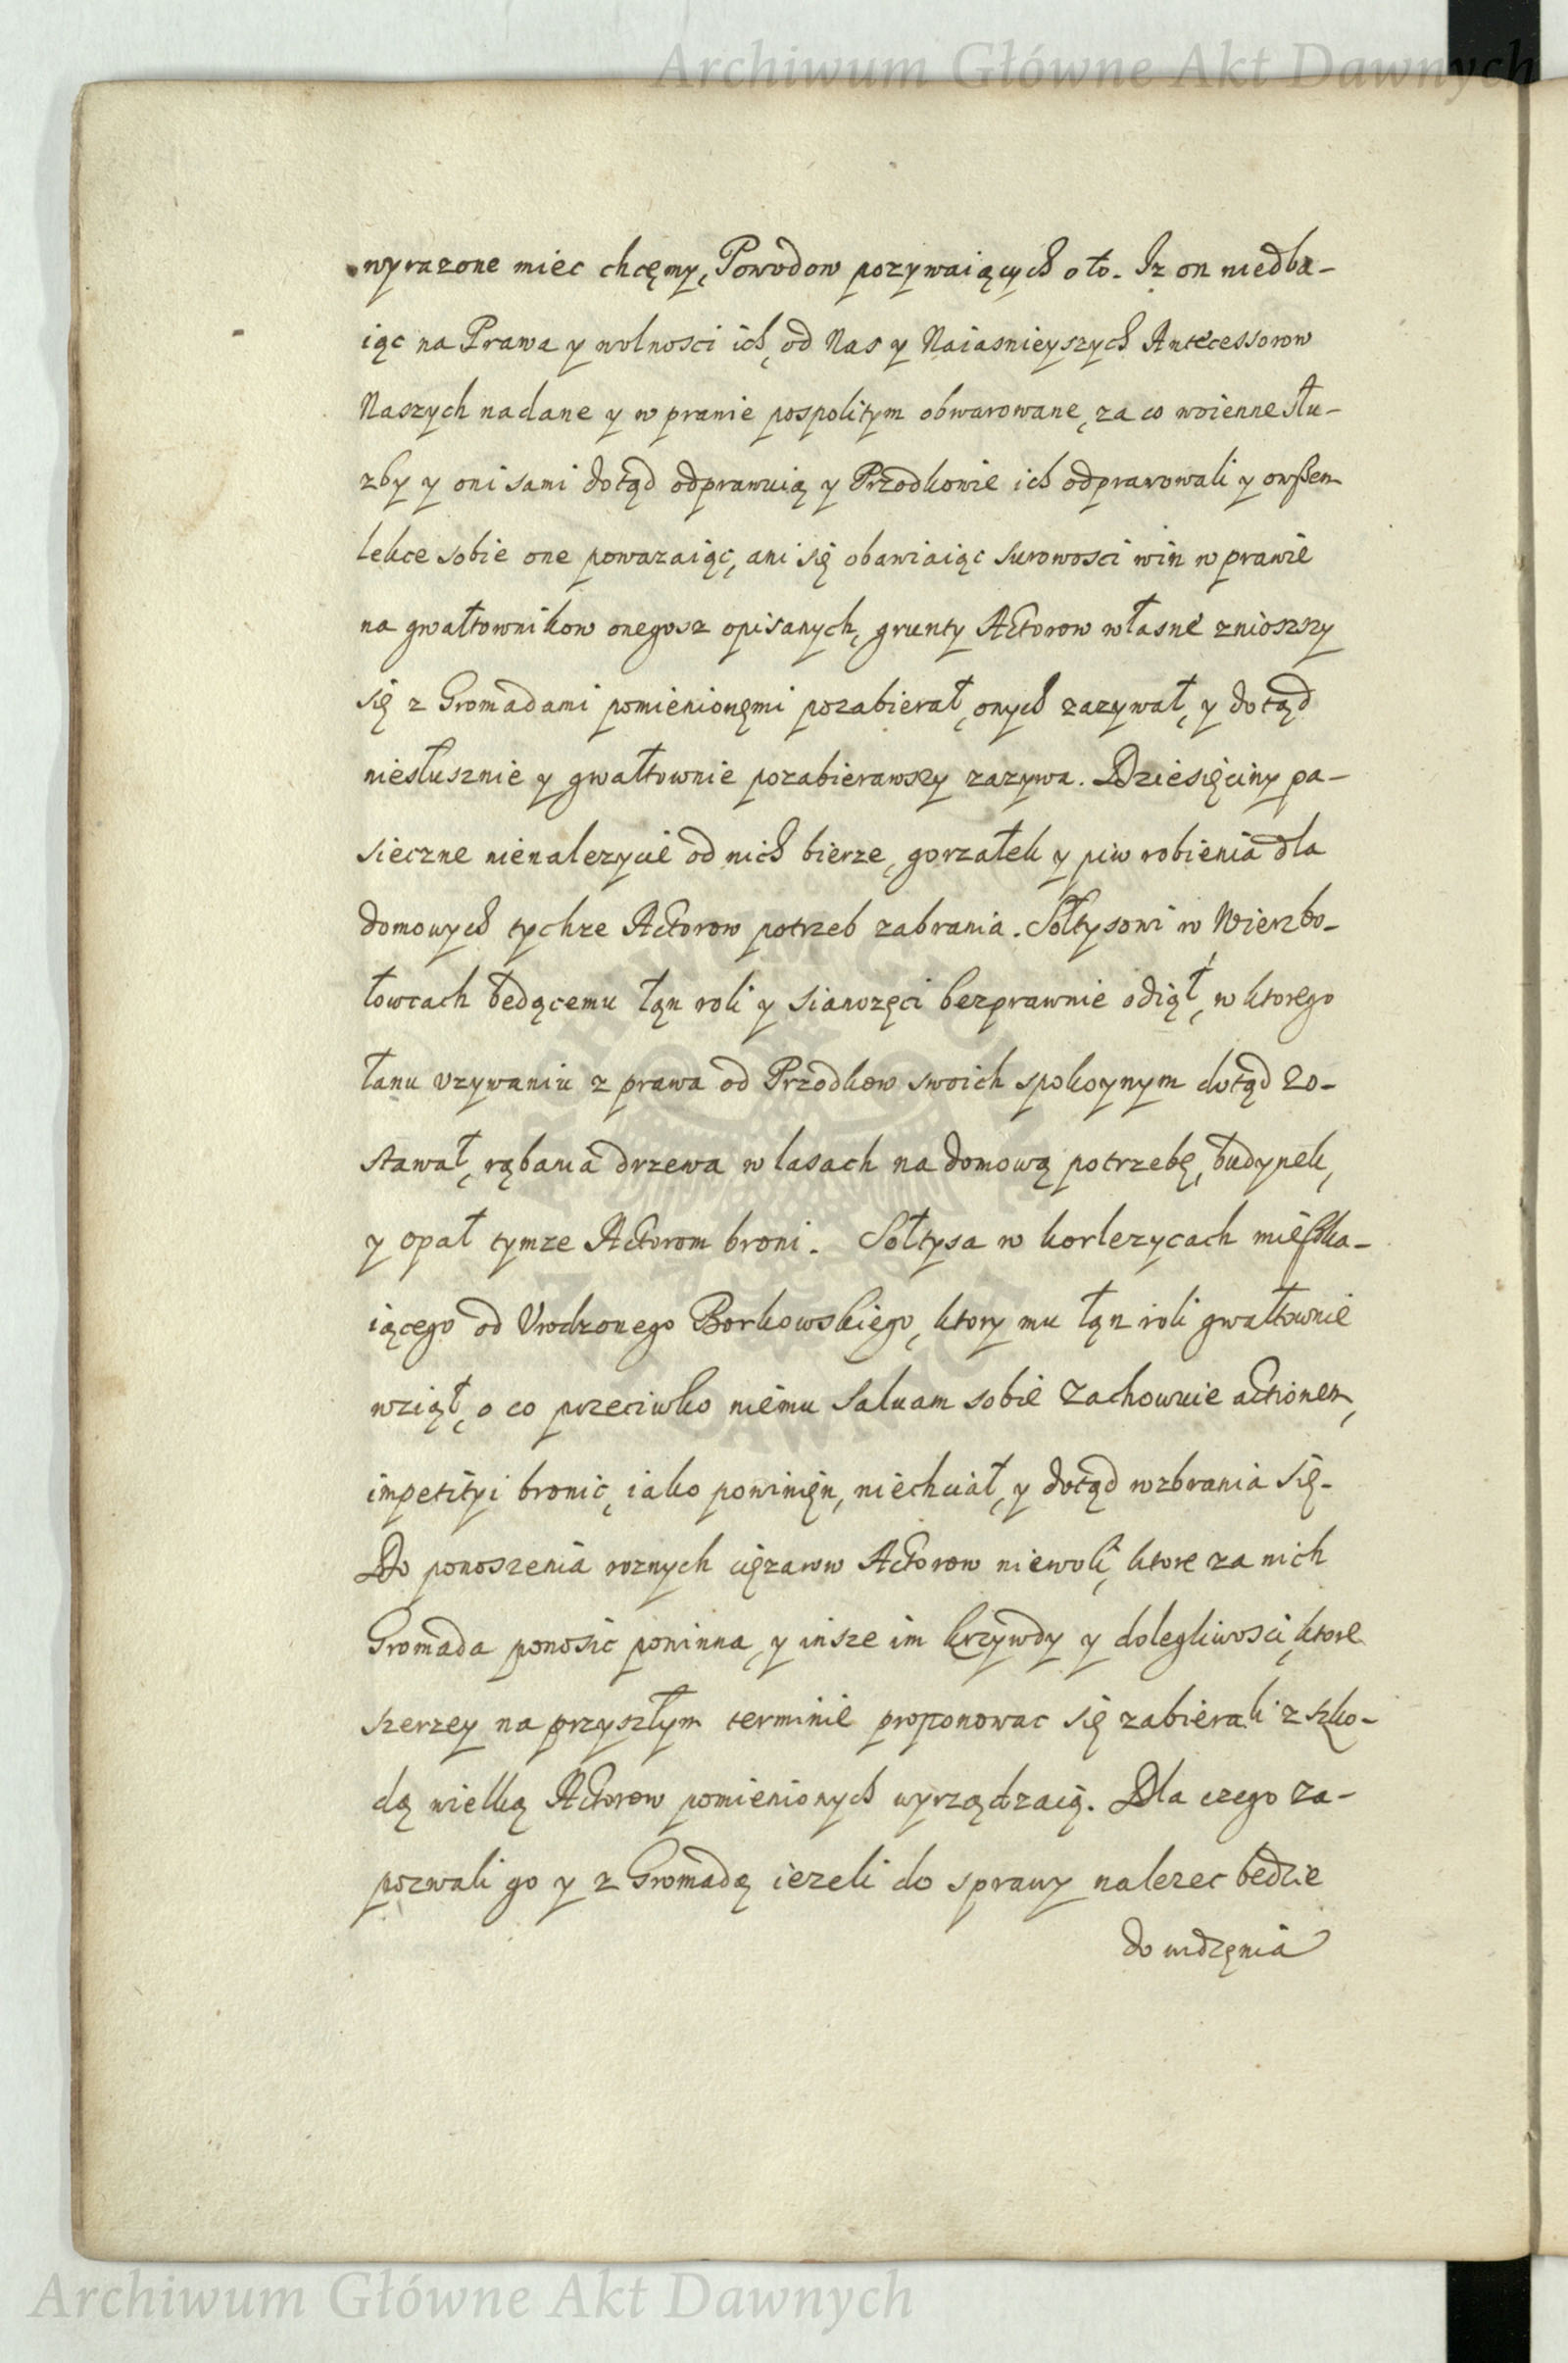 Archiwum Główne Akt Dawnych
wyrazone miec chcęmy, Powodow pozywaiących o to. Iz on niedba-
iąc na Prawa y wolnosci ich, od Nas y Naiasnieyszych Antecessorow
Naszych nadane y w prawie pospolitym obwarowane, za co woienne słu-
zby y oni sami dotąd odprawuią y Przodkowie ich odprawowali y owszem
lekce sobie one powazaiąc, ani się obawiaiąc surowosci win w prawie
na gwałtownikow onegosz opisanych, grunty Actorow własne zniosszy
się z Gromadami pomienionęmi pozabierał, onych zazywał, y dotąd
niesłusznie y gwałtownie pozabierawszy zazywa. Dziesięciny pa-
sieczne nienalezycie od nich bierze, gorzałek y piw robienia dla
domowych tychze Actorow potrzeb zabrania. Sołtysowi w Wierzbo-
łowcach będącemu łąn roli y sianozęci bezprawnie odiął, w ktorego
łanu vzywaniu z prawa od Przodkow swoich spokoynym dotąd zo-
stawał, rąbania drzewa w lasach na domową potrzebę, budynek,
y opał tymze Actorom broni. Sołtysa w korlezycach mieszka-
iącego od Vrodzonego Borkowskiego, ktory mu łąn roli gwałtownie
wziął, o co przeciwko niemu saluam sobie zachowuie actionem,
impetityi bronic, iako powinięn, niechciał, y dotąd wzbrania się.
Do ponoszenia roznych cięzarow Actorow niewoli, ktore za nich
Gromada ponosic powinna, y insze im krzywdy y dolegliwosci, ktore
szerzey na przyszłym terminie proponowac się zabierali z szko-
dą wielką Actorow pomienionych wyrządzaią. Dla czego za-
pozwali go y z Gromadą iezeli do sprawy nalezec będzie
do widzęnia
Archiwum Główne Akt Dawnych